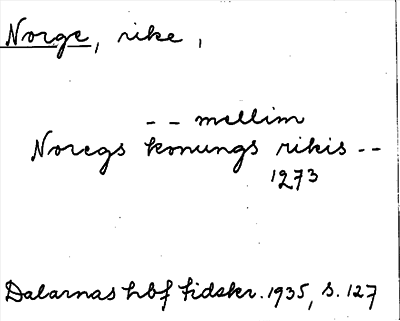 Norge, rike,
-- mellim
Noregs konungs rikis --
1273
Dalarnas hbf tidskr. 1935, s. 127